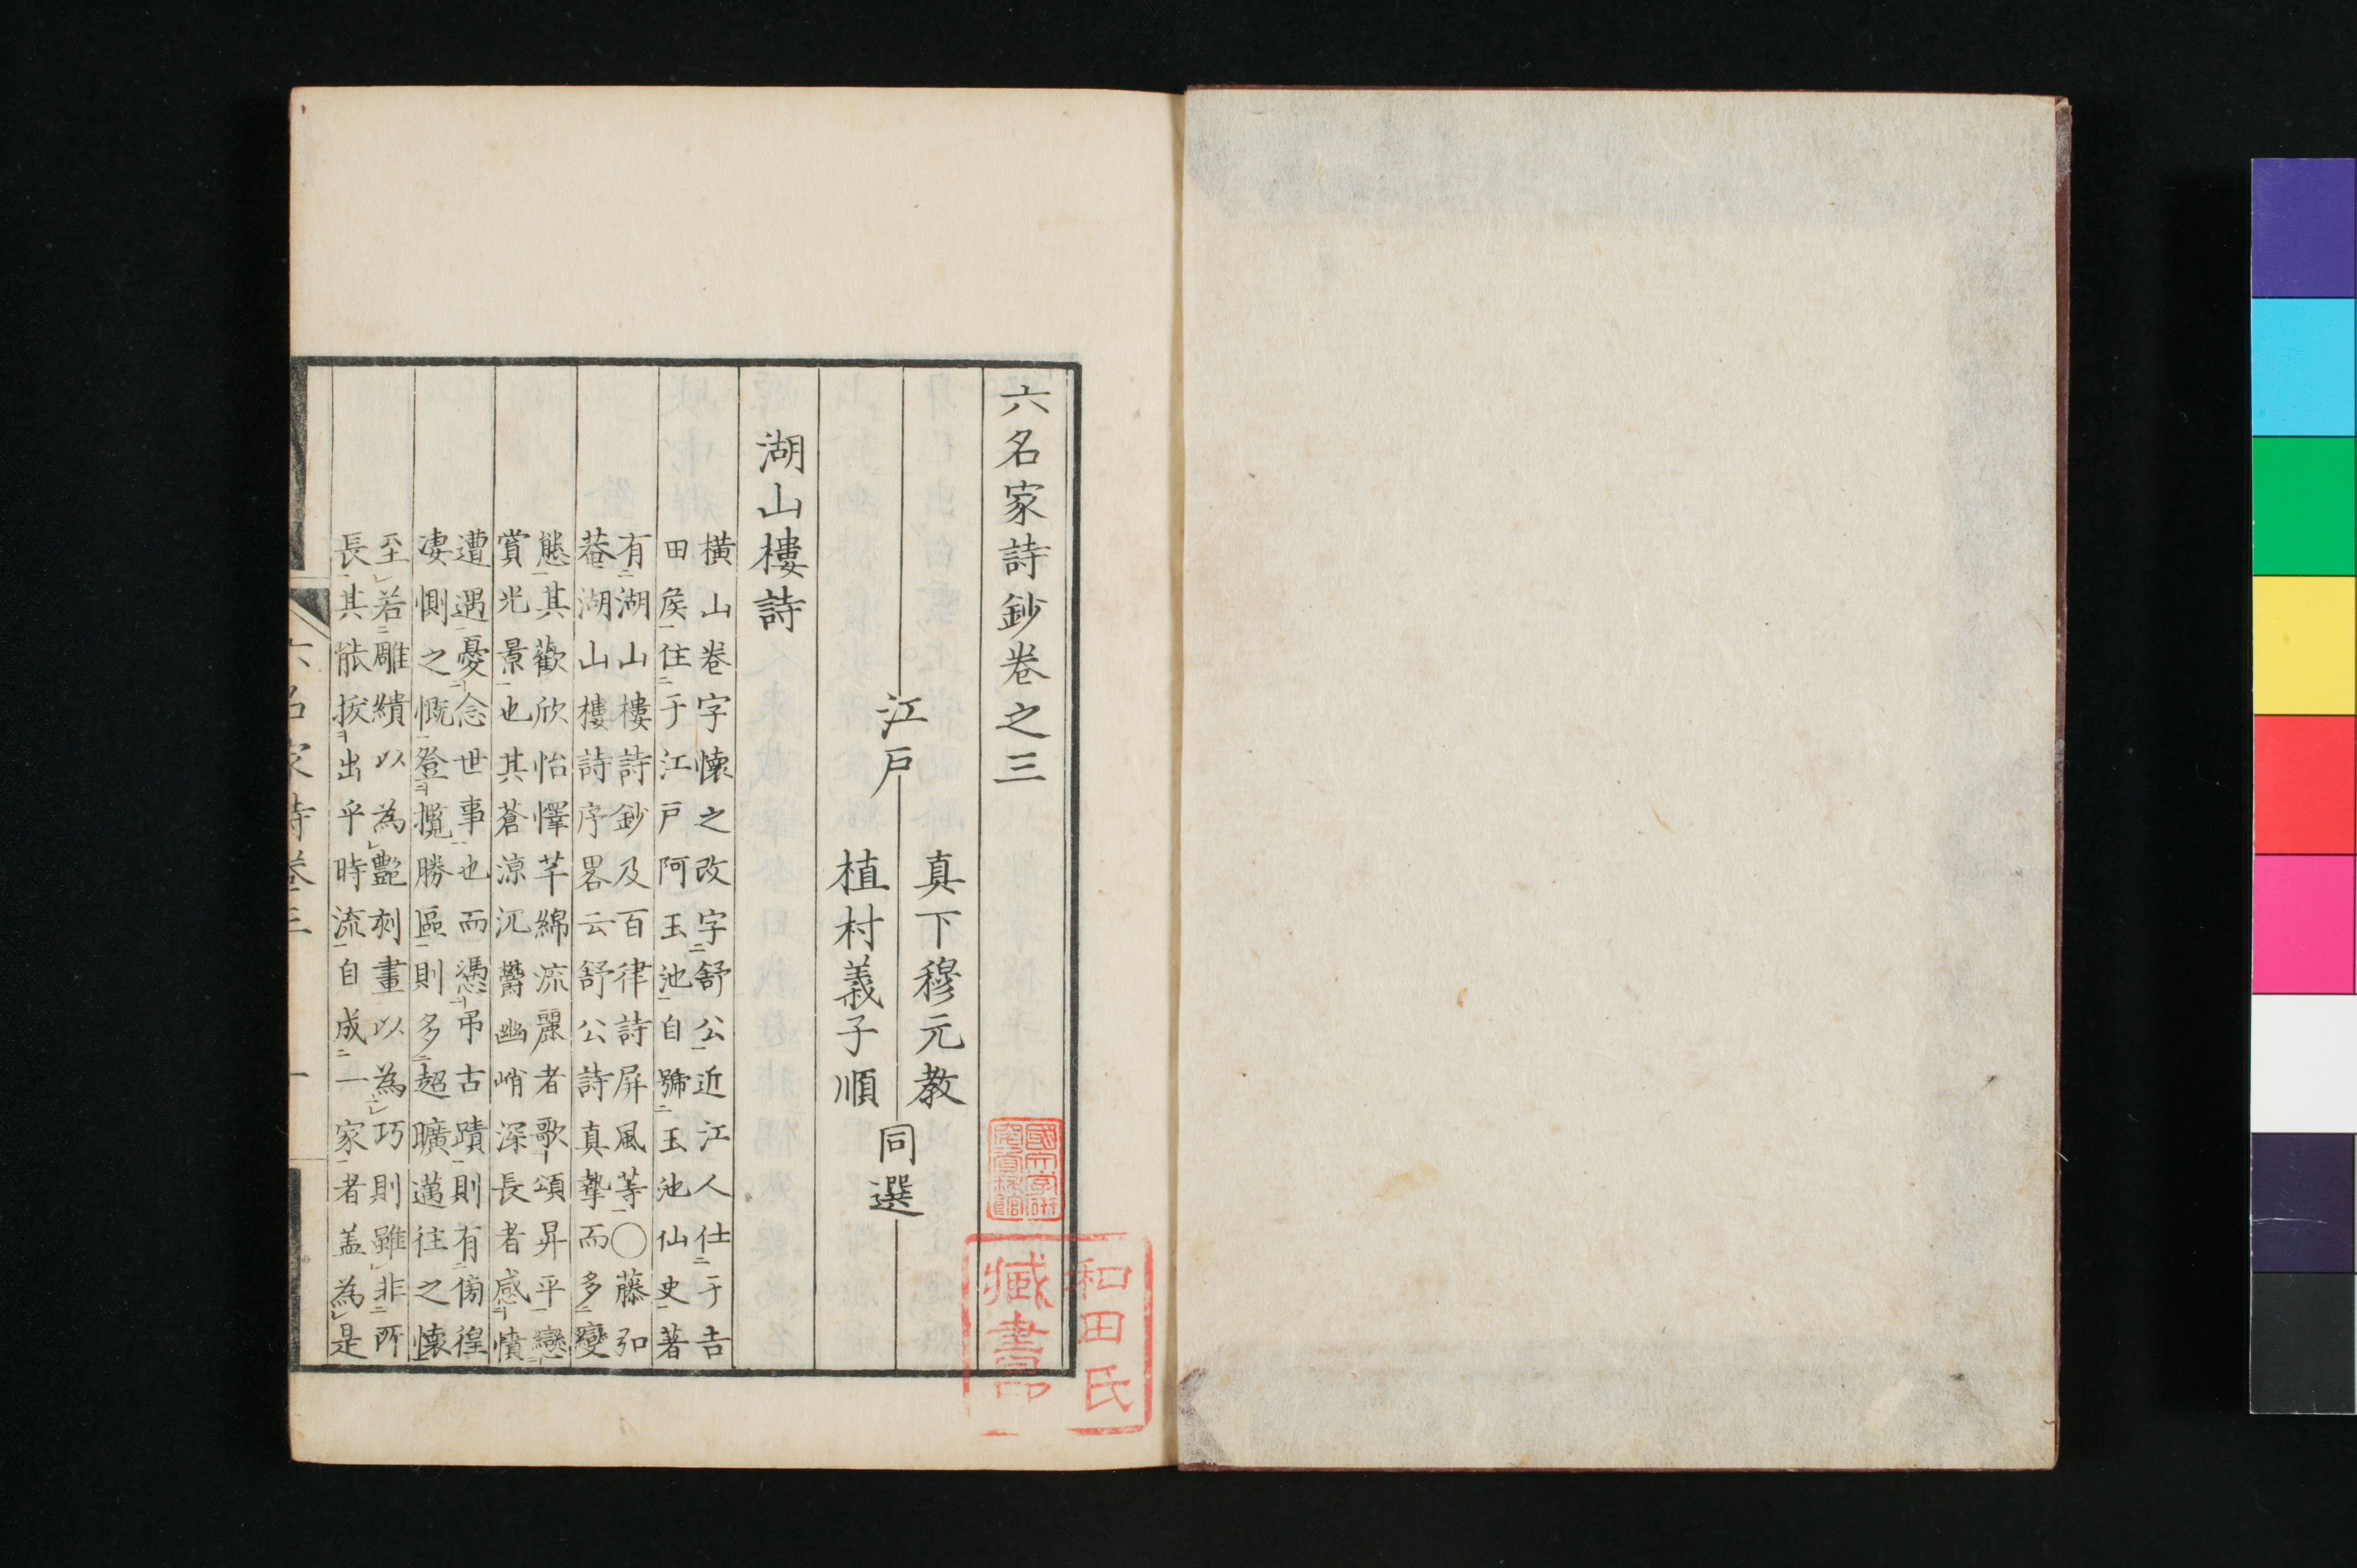 六名家詩鈔卷之三
江戸
真下穆元教
植村義子順
同選
湖山樓詩
橫山卷字懷之改字舒公近江人仕于吉
田矦住于江戸阿玉池自號玉池仙史著
有湖山樓詩鈔及百律詩屏風等〇藤弘
菴湖山樓詩序畧云舒公詩真摯而多變
態其歡欣怡懌芊綿流麗者歌頌昇平戀
賞光景也其蒼涼沉鬱幽峭深長者感憤
遭遇憂念世事也而憑弔古蹟則有傍徨
凄惻之慨登攬勝區則多超曠邁往之懷
至若雕繢以為艷刻畫以為巧則雖非所
長其能拔出乎時流自成一家者盖為是
六名家詩卷三
一
和田氏
臧書印